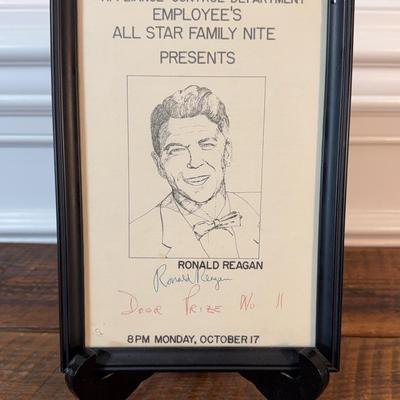 APPLIANCE CONTROL DEPARTMENT
EMPLOYEE'S
ALL STAR FAMILY NITE
PRESENTS
RONALD REAGAN
Ronald Reagan
Door Prize No 11
8PM MONDAY, OCTOBER 17